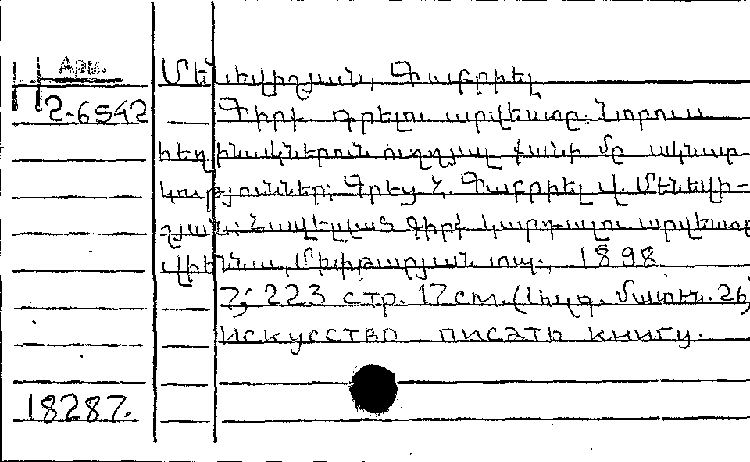 Арм.
Н
2-6542
Մենևիշյան, Գաբրիել
Գիրք գրելու արվեստը: Նորուս
հեղինակներուն ուղղյալ քանի մը ակնար-
կություններ: Գրեց Հ. Գաբրիել վ. Մենևի-
շյան: Հավելված գիրք կարդալու արվեստը
Վիեննա, Մխիթարյան տպ., 1898
7; 223 стр. 17см. (Ազգ. մատեն. 26)
Искусство писать книгу.
18287.